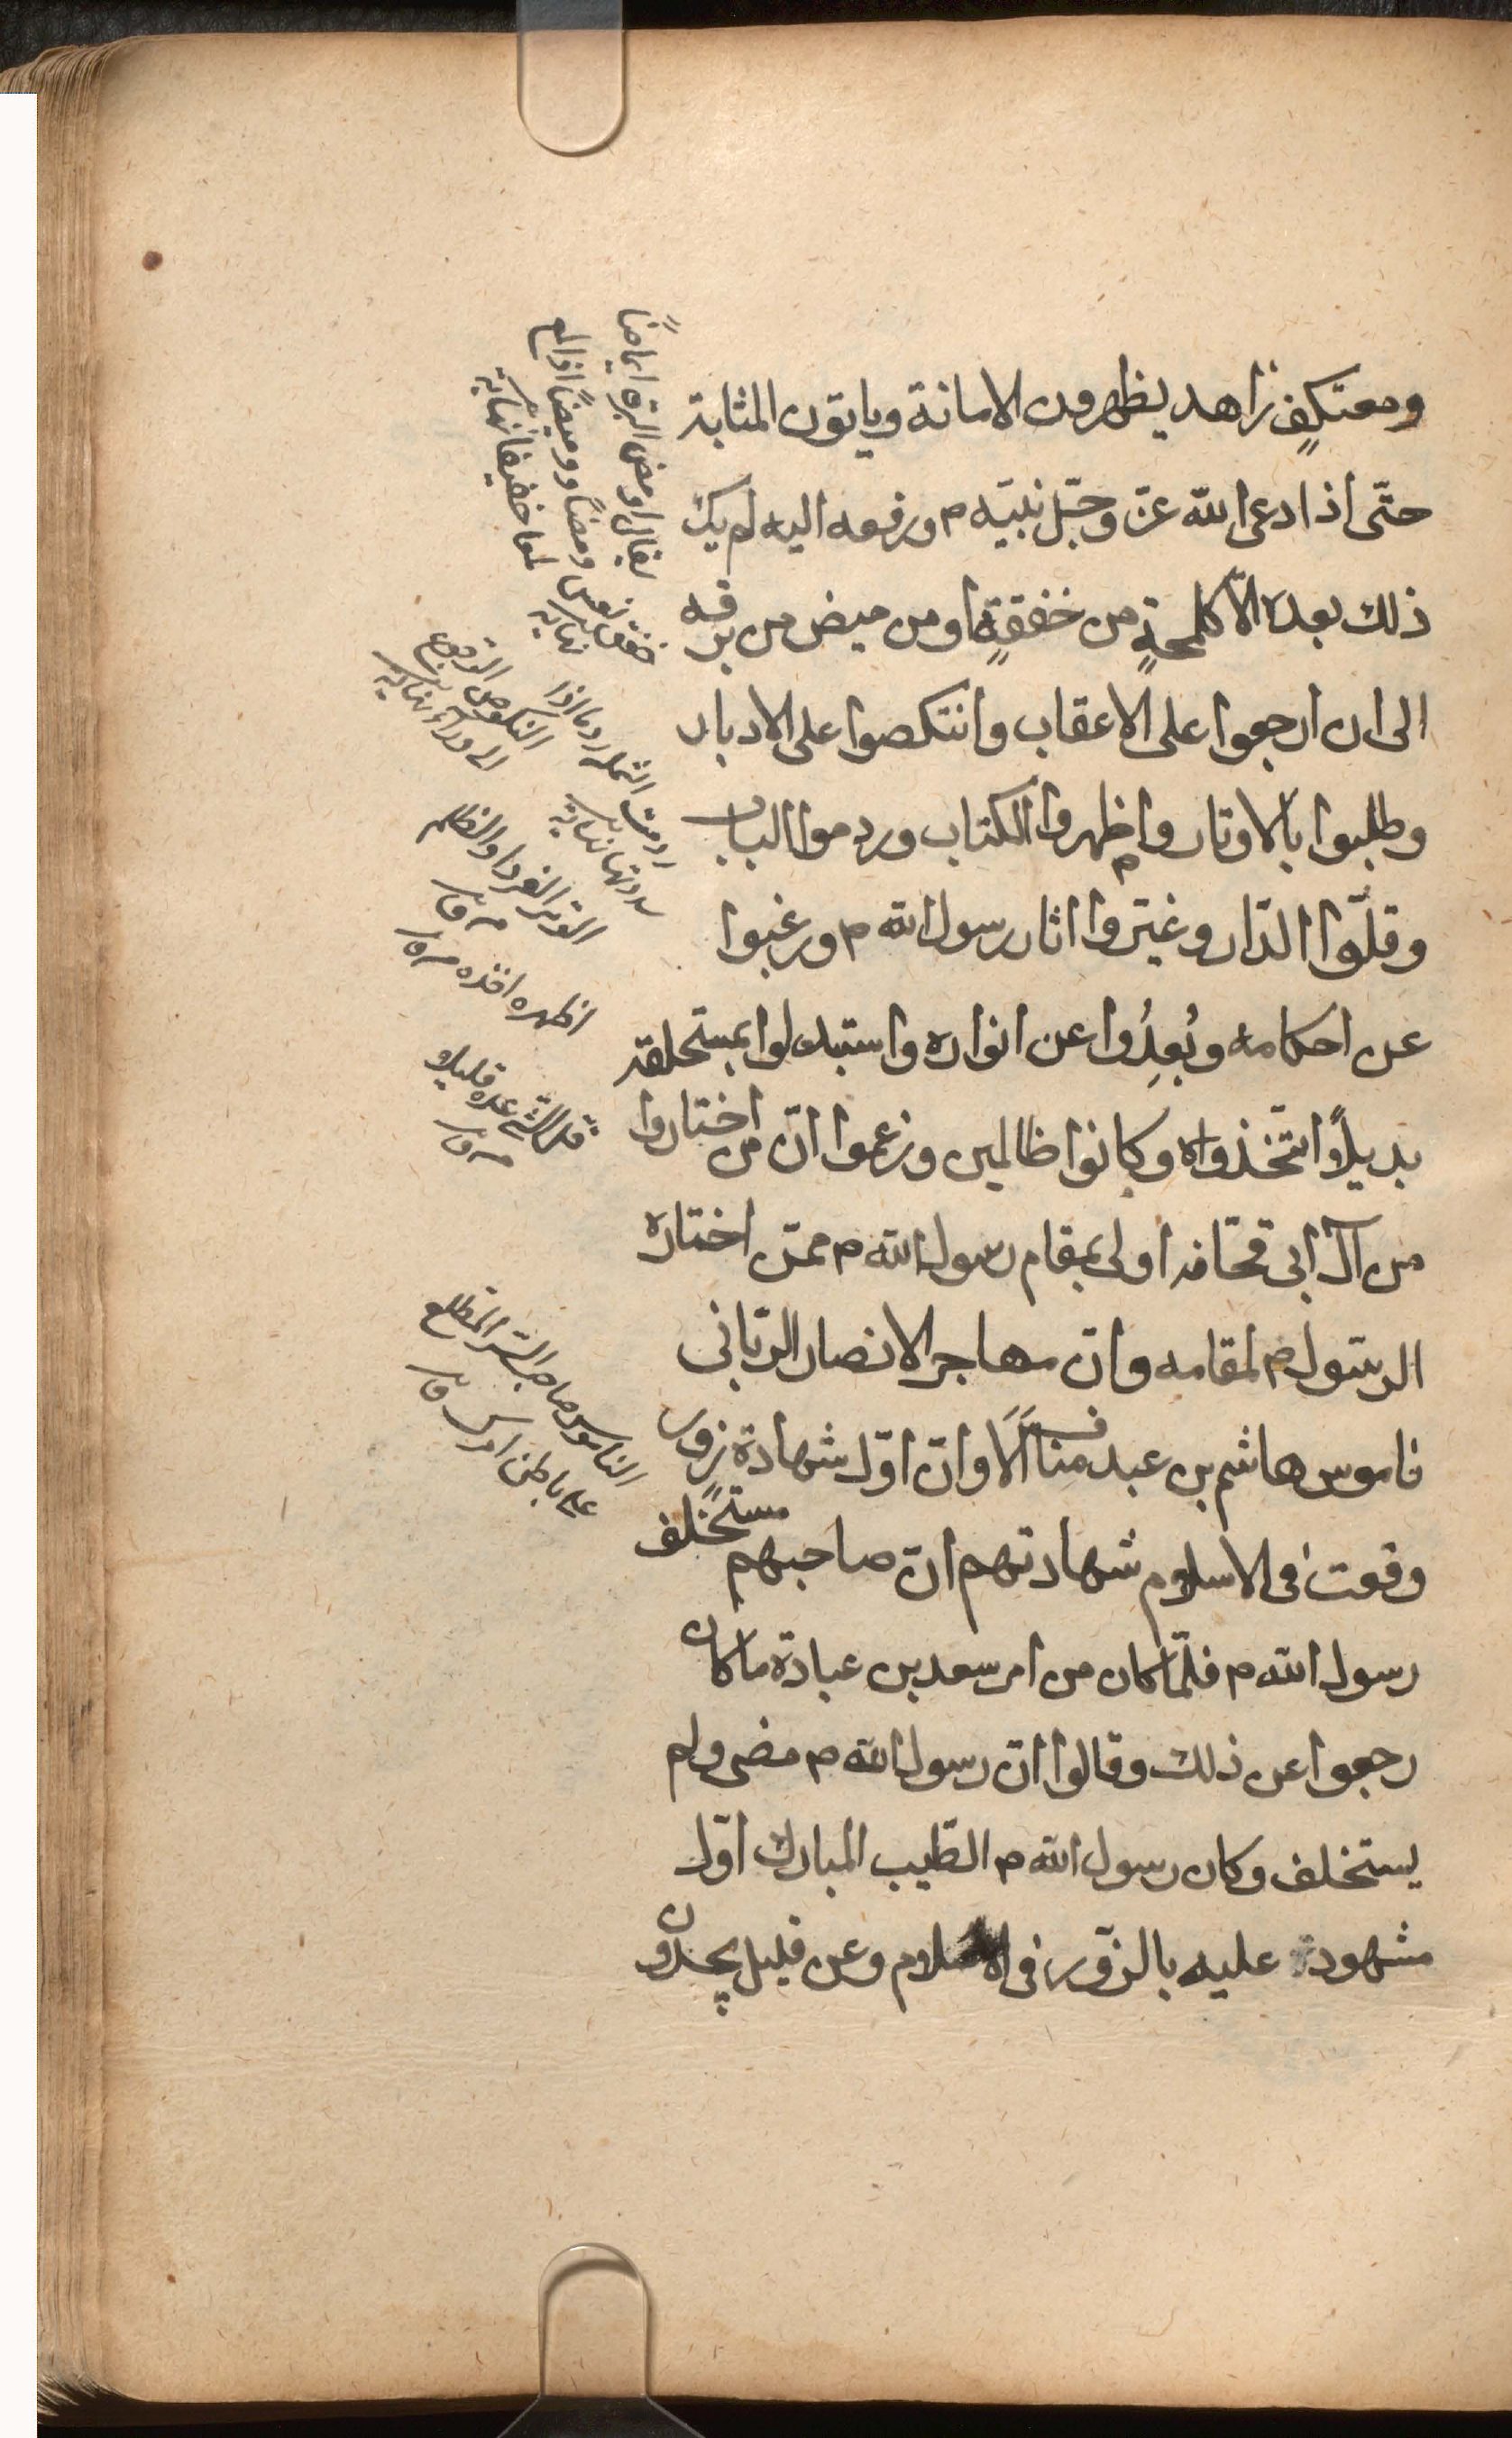 ومعتكفٍ زاهد يظهرون الامانة ويأتون المثابة
حتّى اذا دعى الله عزّ وجلّ نبيّه م ورفعه اليه لم يك
ذلك بعده الّا كلمحةٍ من خفقةٍ او من ميض من برقه
الى ان ارجعوا على الاعقاب وانتكصوا على الادبار
وطلبوا بالاوتار واظهروا الكتاب وردموا الباب
وقلّوا الدّار وغيّروا اثار رسول الله م ورغبوا
عن احكامه وبُعِدُوا عن انواره واستبدلوا بمستخلفه
بديلًا اتّخذواه وكانوا ظالمين وزعموا انّ من اختاروا
من آل ابى قحافه اولى بمقام رسول الله م ممّن اختاره
الرسّول م لمقامه وانّ مهاجر الانصار الربّانى
ناموس هاشم بن عبد مناف الَا وانّ اوّل شهادة زورٍ
وقعت فى الاسلام شهادتهم انّ صاحبهم مستخلف
رسول الله م فلمّا كان من امر سعد بن عبادة ما كان
رجعوا عن ذلك وقالوا انّ رسول الله م مضى ولم
يستخلف وكان رسول الله م الطّيب المبارك اوّل
مشهود عليه بالزّور فى الاسلام وعن قليل يجدون
يقال اومض البرق ايماضًا
ومضًا ووميضًا اذا لمع
لمعا خفيفا نهاية
خفق نعس نهاية
النكوص الرجوع
الى وراء نهاية
ردمت الثلمة ردما اذا
سددتها نهاية
الوتر الفرد والظلم
م ق
اظهره م ق
م ق
الناموس صاحب السّر المطّلع
على باطن امرك ق